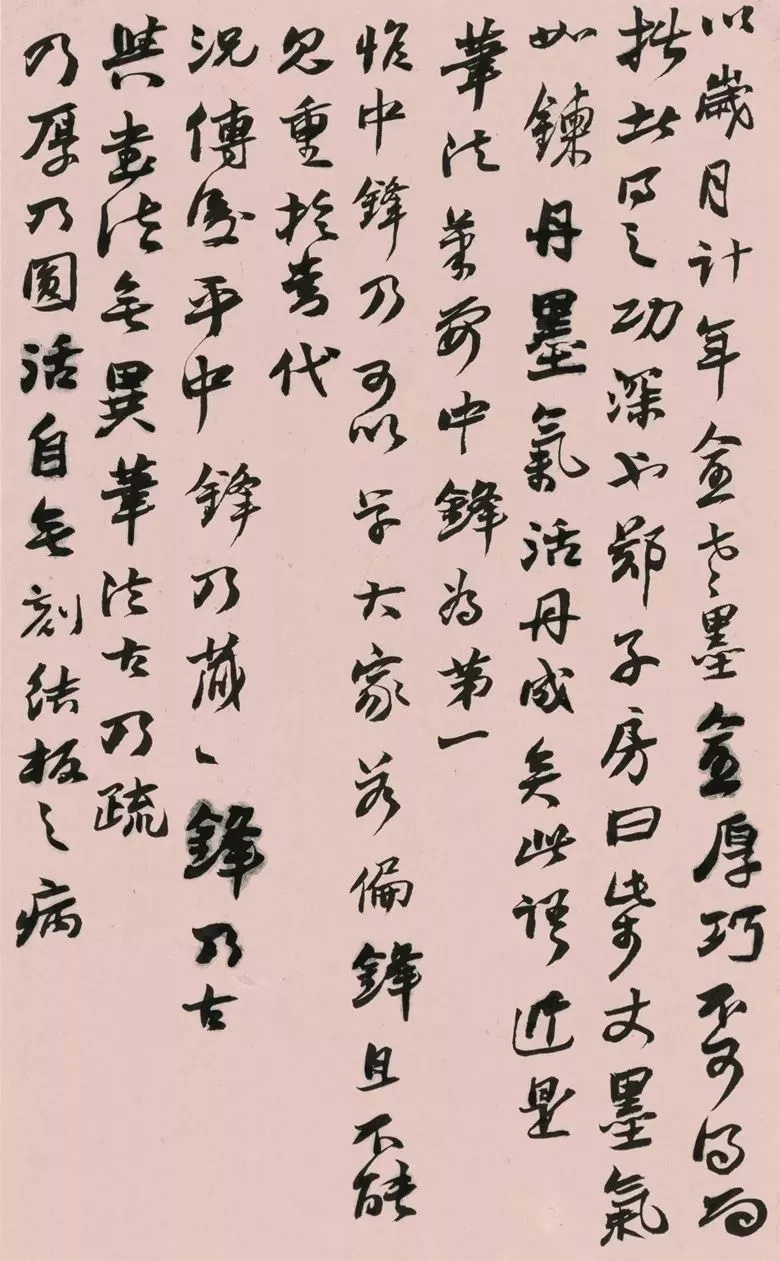 以歲月計年愈老墨愈厚巧不可得而
拙者得之功深也鄭子房曰柴丈墨氣
如鍊丹墨氣活丹成矣此語近是
筆法筆要中鋒為第一
惟中鋒乃可以学大家若偏鋒且不能
見重於當代
況傳後乎中鋒乃藏〻鋒乃古
與書法無異筆法古乃疏
乃厚乃圓活自無刻結板之病